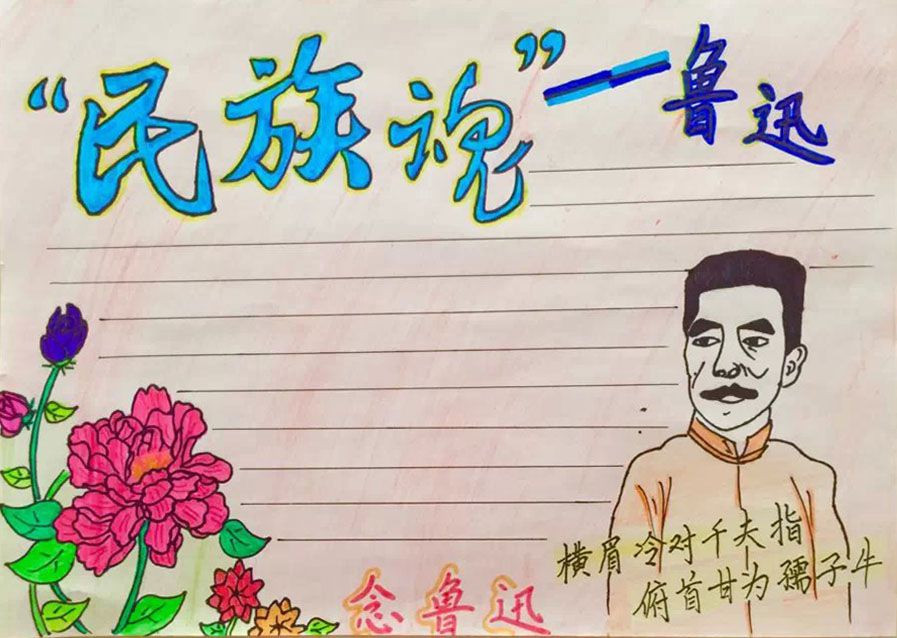 “民族魂”——鲁迅
横眉冷对千夫指
俯首甘为孺子牛
念鲁迅